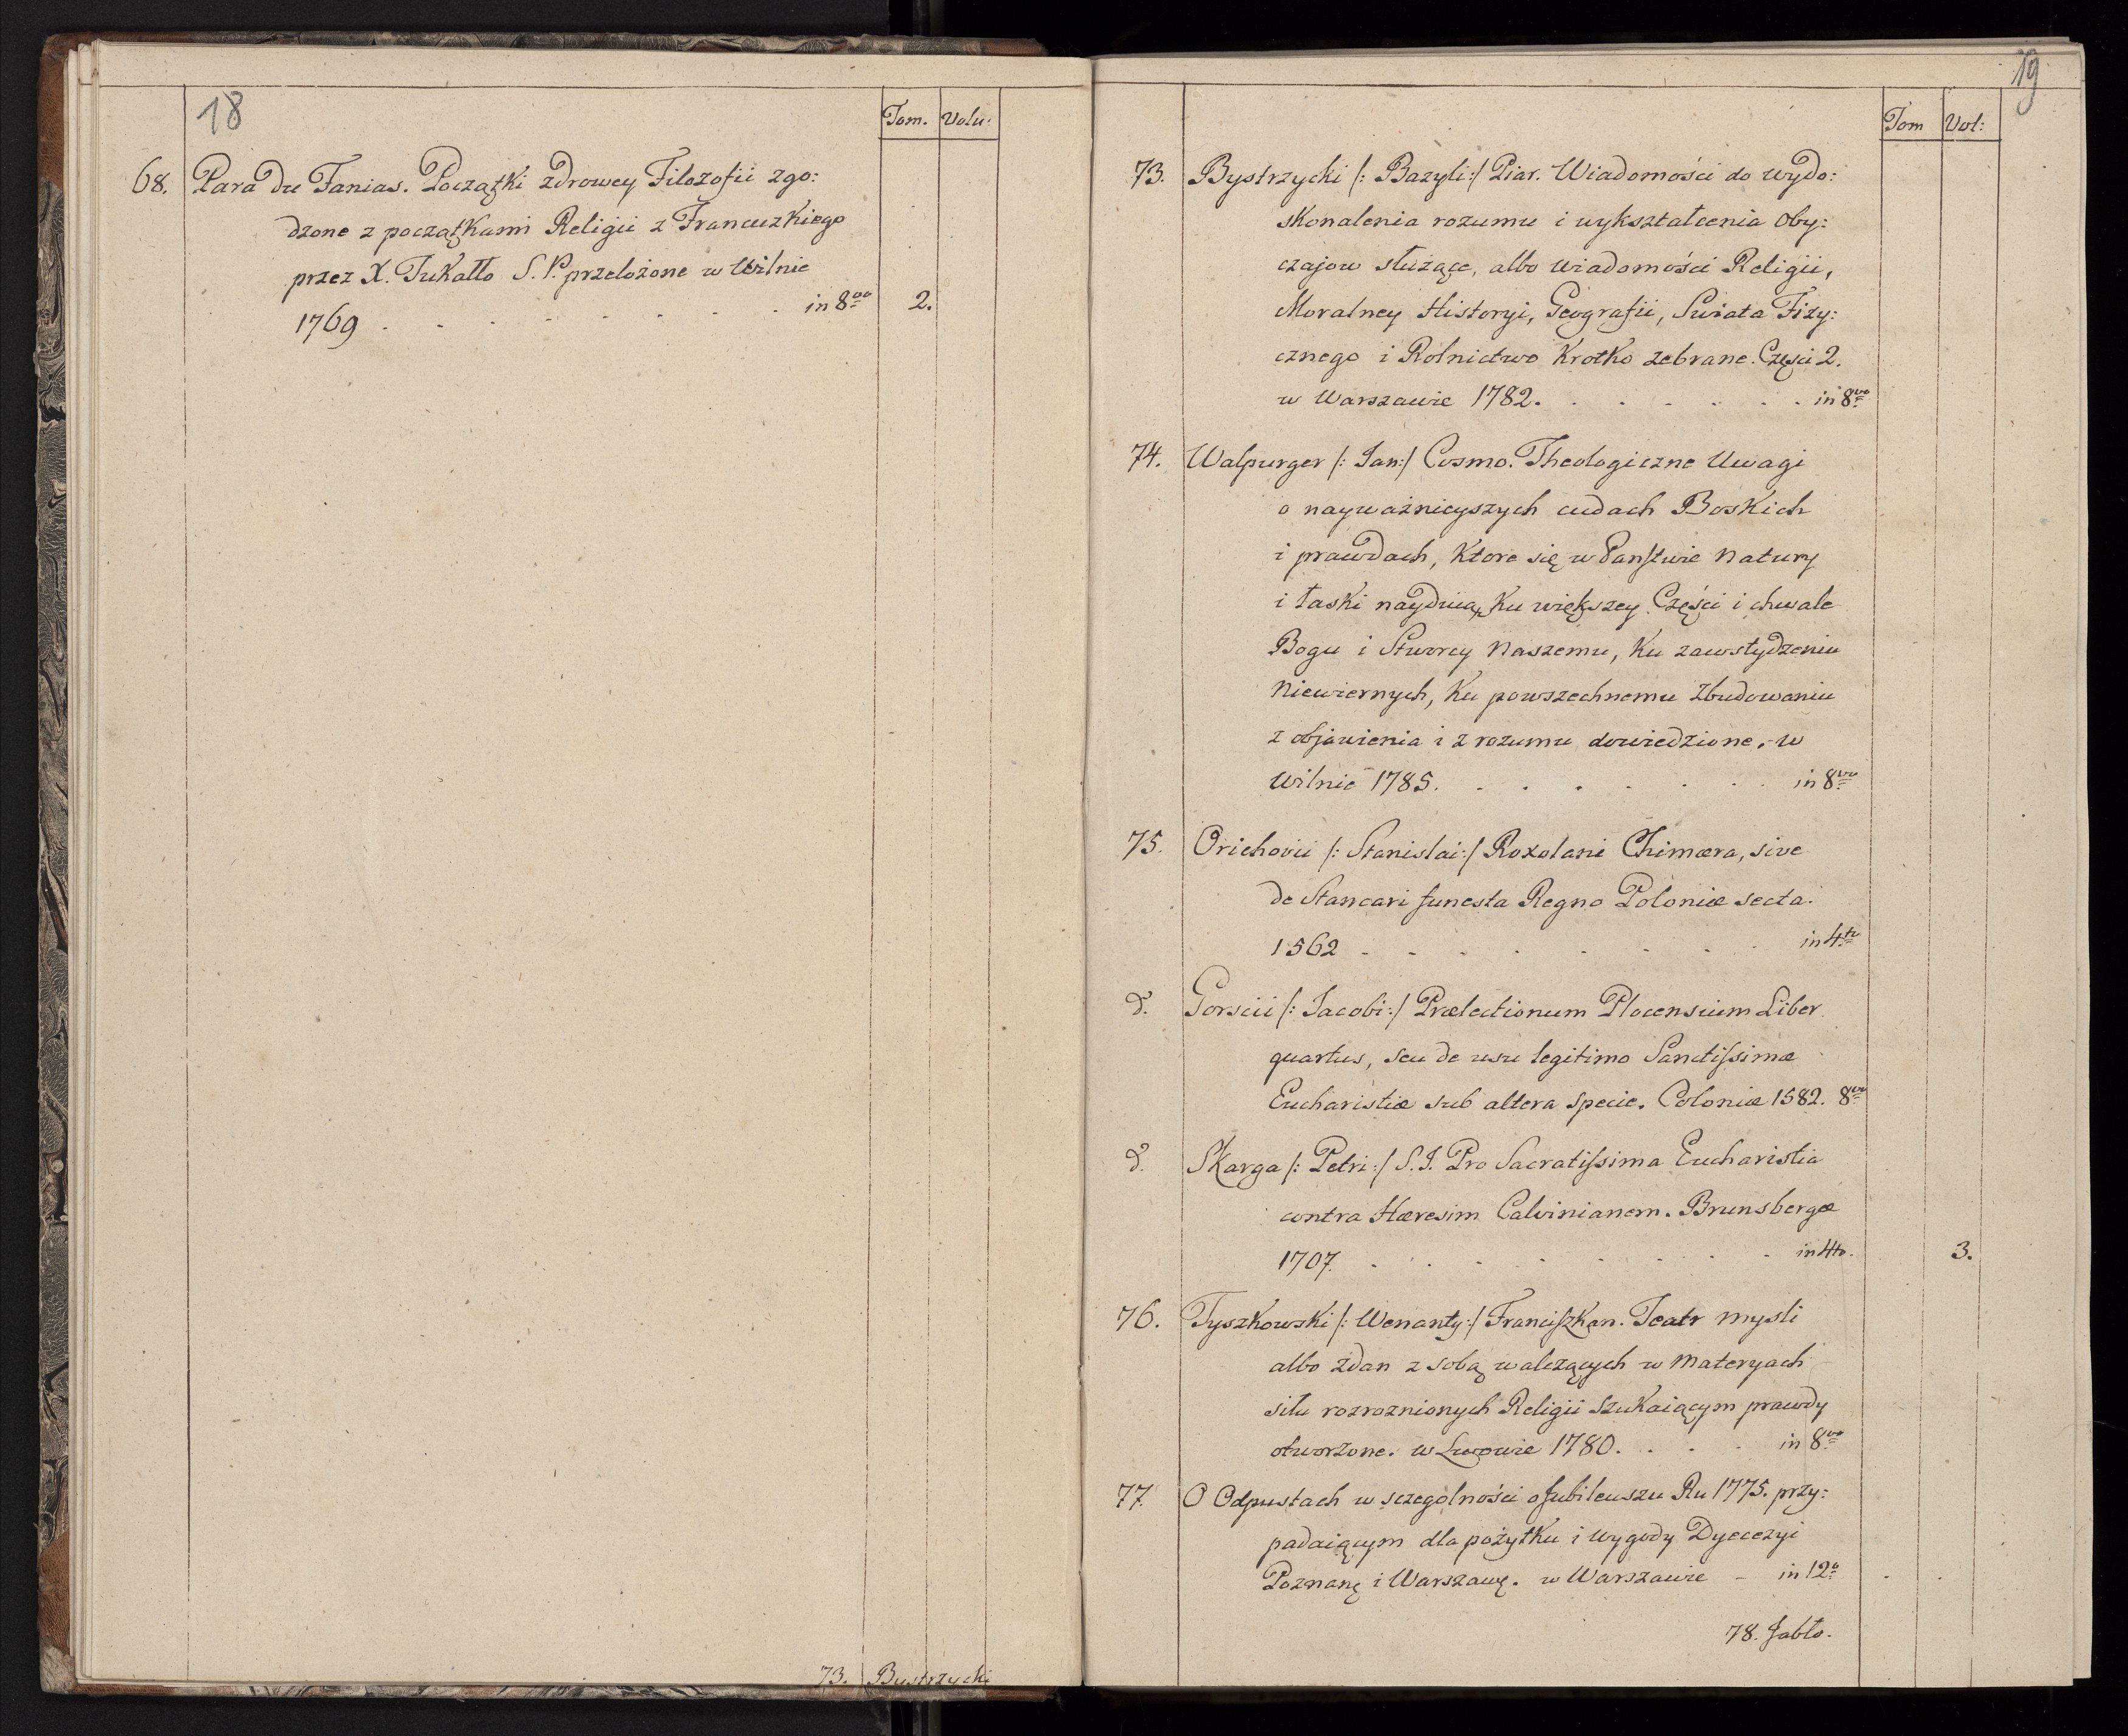 18
Tom. Volu:
68. Para du Fanias. Początki zdrowey Filozofii zgo:
dzone z początkami Religii z Francuzkiego
przez X. Tukałło S. P. przełożone w Wilnie
1769 . . . . . . . . in 8vo 2.
73. Bystrzycki
19
Tom Vol:
73. Bystrzycki /: Bazyli:/ Piar. Wiadomości do wydo:
skonalenia rozumu i wykształcenia Oby:
czajow służące, albo wiadomości Religii,
Moralney Historyi, Geografii, Swiata Fizy:
cznego i Rolnictwo krotko zebrane. Części 2.
w Warszawie 1782. . . . . . . in 8vo
74. Walpurger /: Jan:/ Cosmo. Theologiczne Uwagi
o nayważnieyszych cudach Boskich
i prawdach, ktore się w Panstwie Natury
i łaski nayduią, ku większey Części i chwale
Bogu i Stworcy Naszemu, ku zawstydzeniu
Niewiernych, ku powszechnemu Zbudowaniu
z objawienia i z rozumu dowiedzione. w
Wilnie 1785. . . . . . . . in 8vo
75. Orichovii /: Stanislai:/ Roxolani Chimæra, sive
de Stancari funesta Regno Poloniæ secta.
1562 . . . . . . . . in 4to
d. Gorscii /: Jacobi:/ Prælectionum Plocensium Liber
quartus, seu de usu legitimo Sanctissimæ
Eucharistiæ sub altera specie. Coloniæ 1582. 8vo
d. Skarga /: Petri:/ S. J. Pro Sacratissima Eucharistia
contra Hæresim Calvinianem. Brunsbergæ
1707. . . . . . . . in 4to. 3.
76. Tyszkowski /: Wenanty:/ Franciszkan. Teatr mysli
albo zdan z sobą walczących w materyach
situ rozroznionych Religii szukaiącym prawdy
otworzone. w Lwowie 1780. . . . in 8vo
77. O Odpustach w sczegolności o Jubileuszu Ru 1775. przy:
padaiącym dla pożytku i wygody Dyecezyi
Poznanę i Warszawę. w Warszawie - in 12o
78. Jabło.